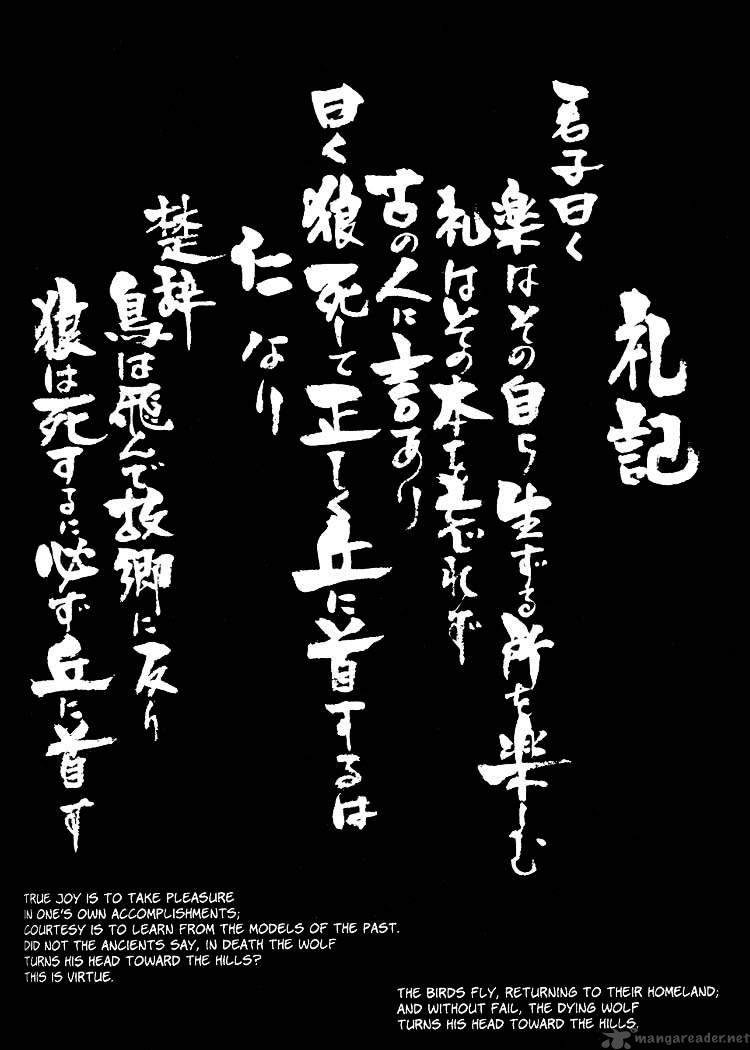 礼記
君子曰く
楽はその自ら生ずる所を楽しむ
礼はその本を忘れず
古の人に言あり
曰く狼死して正しく丘に首するは
仁なり
楚辞
鳥は飛んで故郷に反り
狼は死するに必ず丘に首す
TRUE JOY IS TO TAKE PLEASURE
IN ONE'S OWN ACCOMPLISHMENTS;
COURTESY IS TO LEARN FROM THE MODELS OF THE PAST.
DID NOT THE ANCIENTS SAY, IN DEATH THE WOLF
TURNS HIS HEAD TOWARD THE HILLS?
THIS IS VIRTUE.
THE BIRDS FLY, RETURNING TO THEIR HOMELAND;
AND WITHOUT FAIL, THE DYING WOLF
TURNS HIS HEAD TOWARD THE HILLS.
mangareader.net